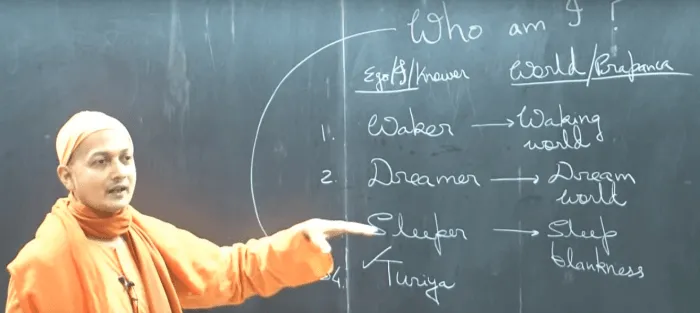 Who am I ?
Ego/I/Knower World/Prapanca
1. Waker → Waking world
2. Dreamer → Dream world
Sleeper → Sleep blankness
4. ✓ Turiya